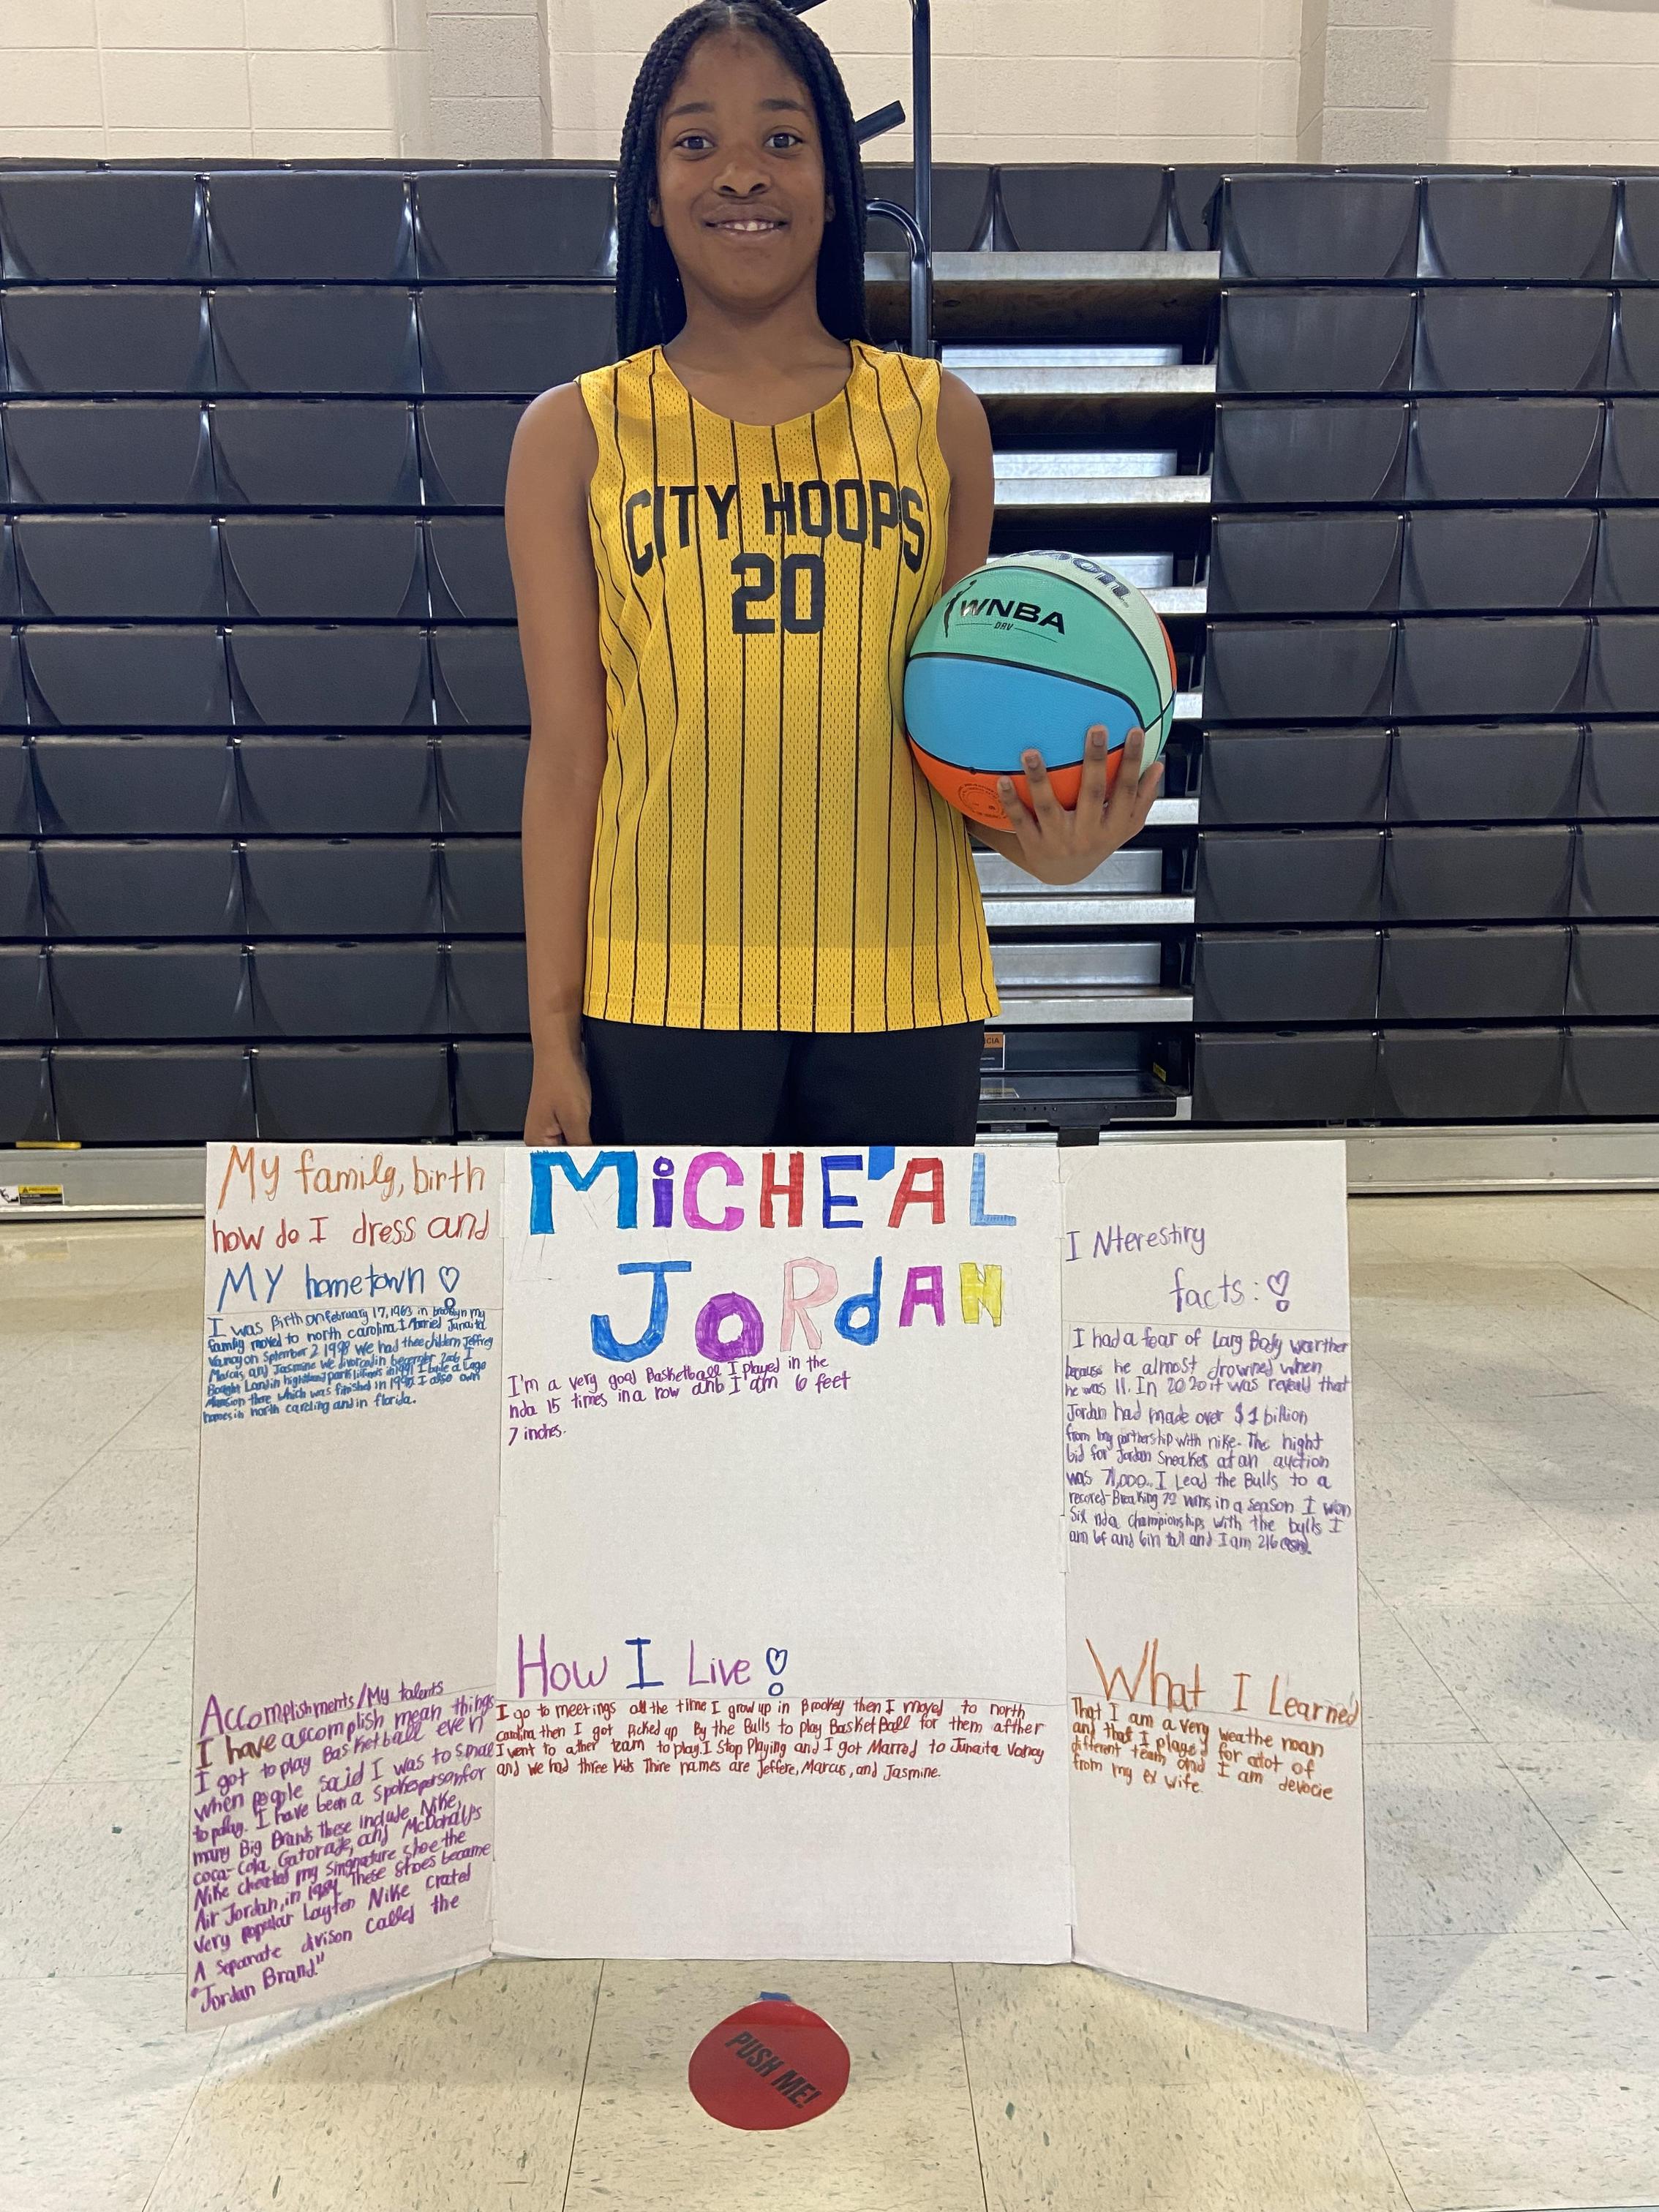 CITY HOOPS
20
WNBA
DRV
My family, birth
how do I dress and
My hometown
I was Birth on february 17, 1963 in brooklyn my
family moved to north carolina I Married Junaita
Vanoy on September 2 1998 We had thee childern Jeffrey
Marcus and Jasmine We divorced in 2006 I
Bought Land in highland park Illinois in 1991 I bulte a Large
Mansion there which was finished in I also own
homes in north carolina and in florida.
Accomplishments/My talents
I have accomplish mean things
I got to play Basketball even
when people said I was to small
to play. I have been a spokesperson for
many Big Brands these include Nike,
coca-cola, Gatorade, and McDonalds
Nike cheated my singnature shoe the
Air Jordan, in 1984. These shoes became
very popular Layter Nike crated
A separate divison called the
"Jordan Brand"
MiCHE'AL
JoRdAN
I'm a very good Basketball I played in the
nda 15 times in a row anb I am 6 feet
7 inches.
How I Live
I go to meetings all the time I grow up in Brookey then I moved to north
carolina then I got Picked up By the Bulls to play BasketBall for them afther
I went to other team to play. I Stop Playing and I got Marred to Junaita Vanoy
and we had three kids Thire names are Jeffere, Marcus, and Jasmine.
INterestiry
facts:
I had a fear of Larg Body wearther
because he almost drowned when
he was 11. In 2020 it was reveald that
Jordan had made over $1 billion
from partnership with nike. The hight
bid for Jordan Sneakers at an auction
was 71,000. I Lead the Bulls to a
recored-Breaking 72 wins in a season I won
Six nda championships with the bulls I
am 6f and 6in tall and I am 216
What I Learned
That I am a very weathe man
and that I played for alot of
different team and I am devocie
from my ex wife.
PUSH ME!